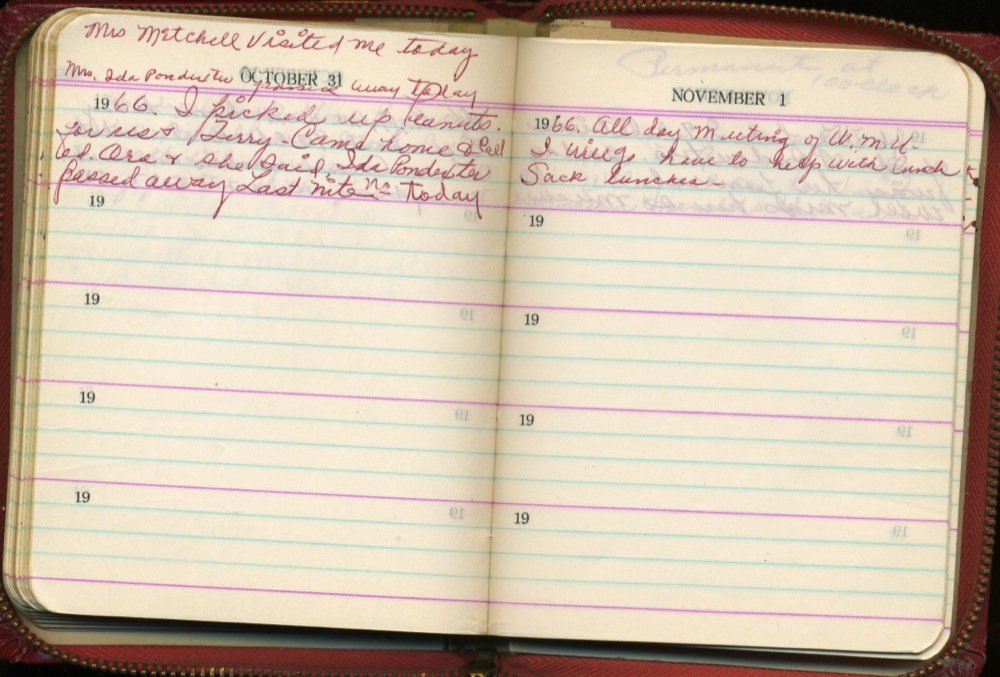 Mrs Mitchell Visited me today
Mrs. Ida Pondexter passed away today
OCTOBER 31
1966. I picked up peanuts.
for us & Terry - Came home & Call
ed. Ora & she said, Ida Pondexter
Passed away Last nite no today
19
19
19
19
Permanent at
10:00 clock
NOVEMBER 1
1966. All day Meeting of W.M.U
I have to help with lunch
Sack lunches -
19
19
19
19